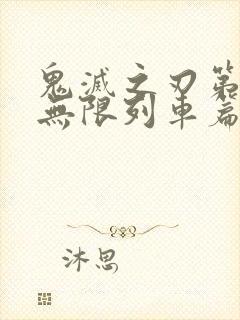 鬼滅之刃第
無限列車篇
沐思